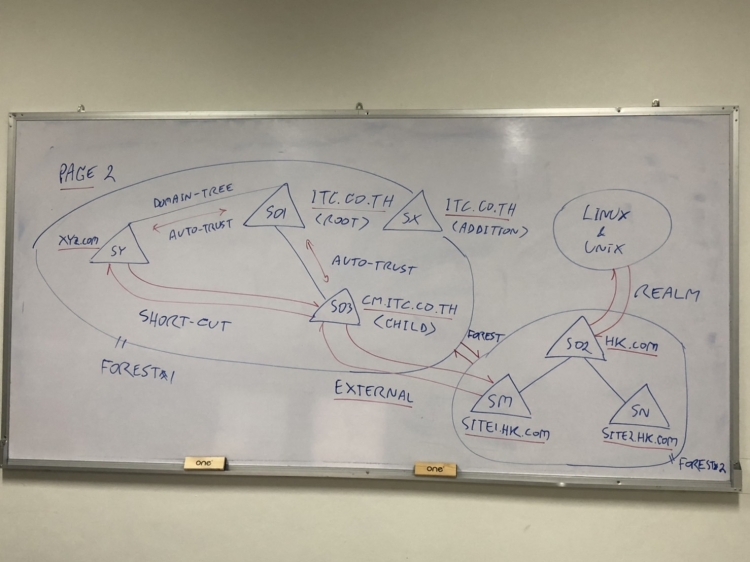 PAGE 2
DOMAIN-TREE
AUTO-TRUST
XYZ.COM
SY
SD1
ITC.CO.TH
(ROOT)
SX
ITC.CO.TH
(ADDITION)
LINUX
&
UNIX
AUTO-TRUST
REALM
SD3
CM.ITC.CO.TH
(CHILD)
SHORT-CUT
FOREST
SD2
HK.COM
FOREST#1
EXTERNAL
SM
SITE1.HK.COM
SN
SITE2.HK.COM
FOREST#2
one
one